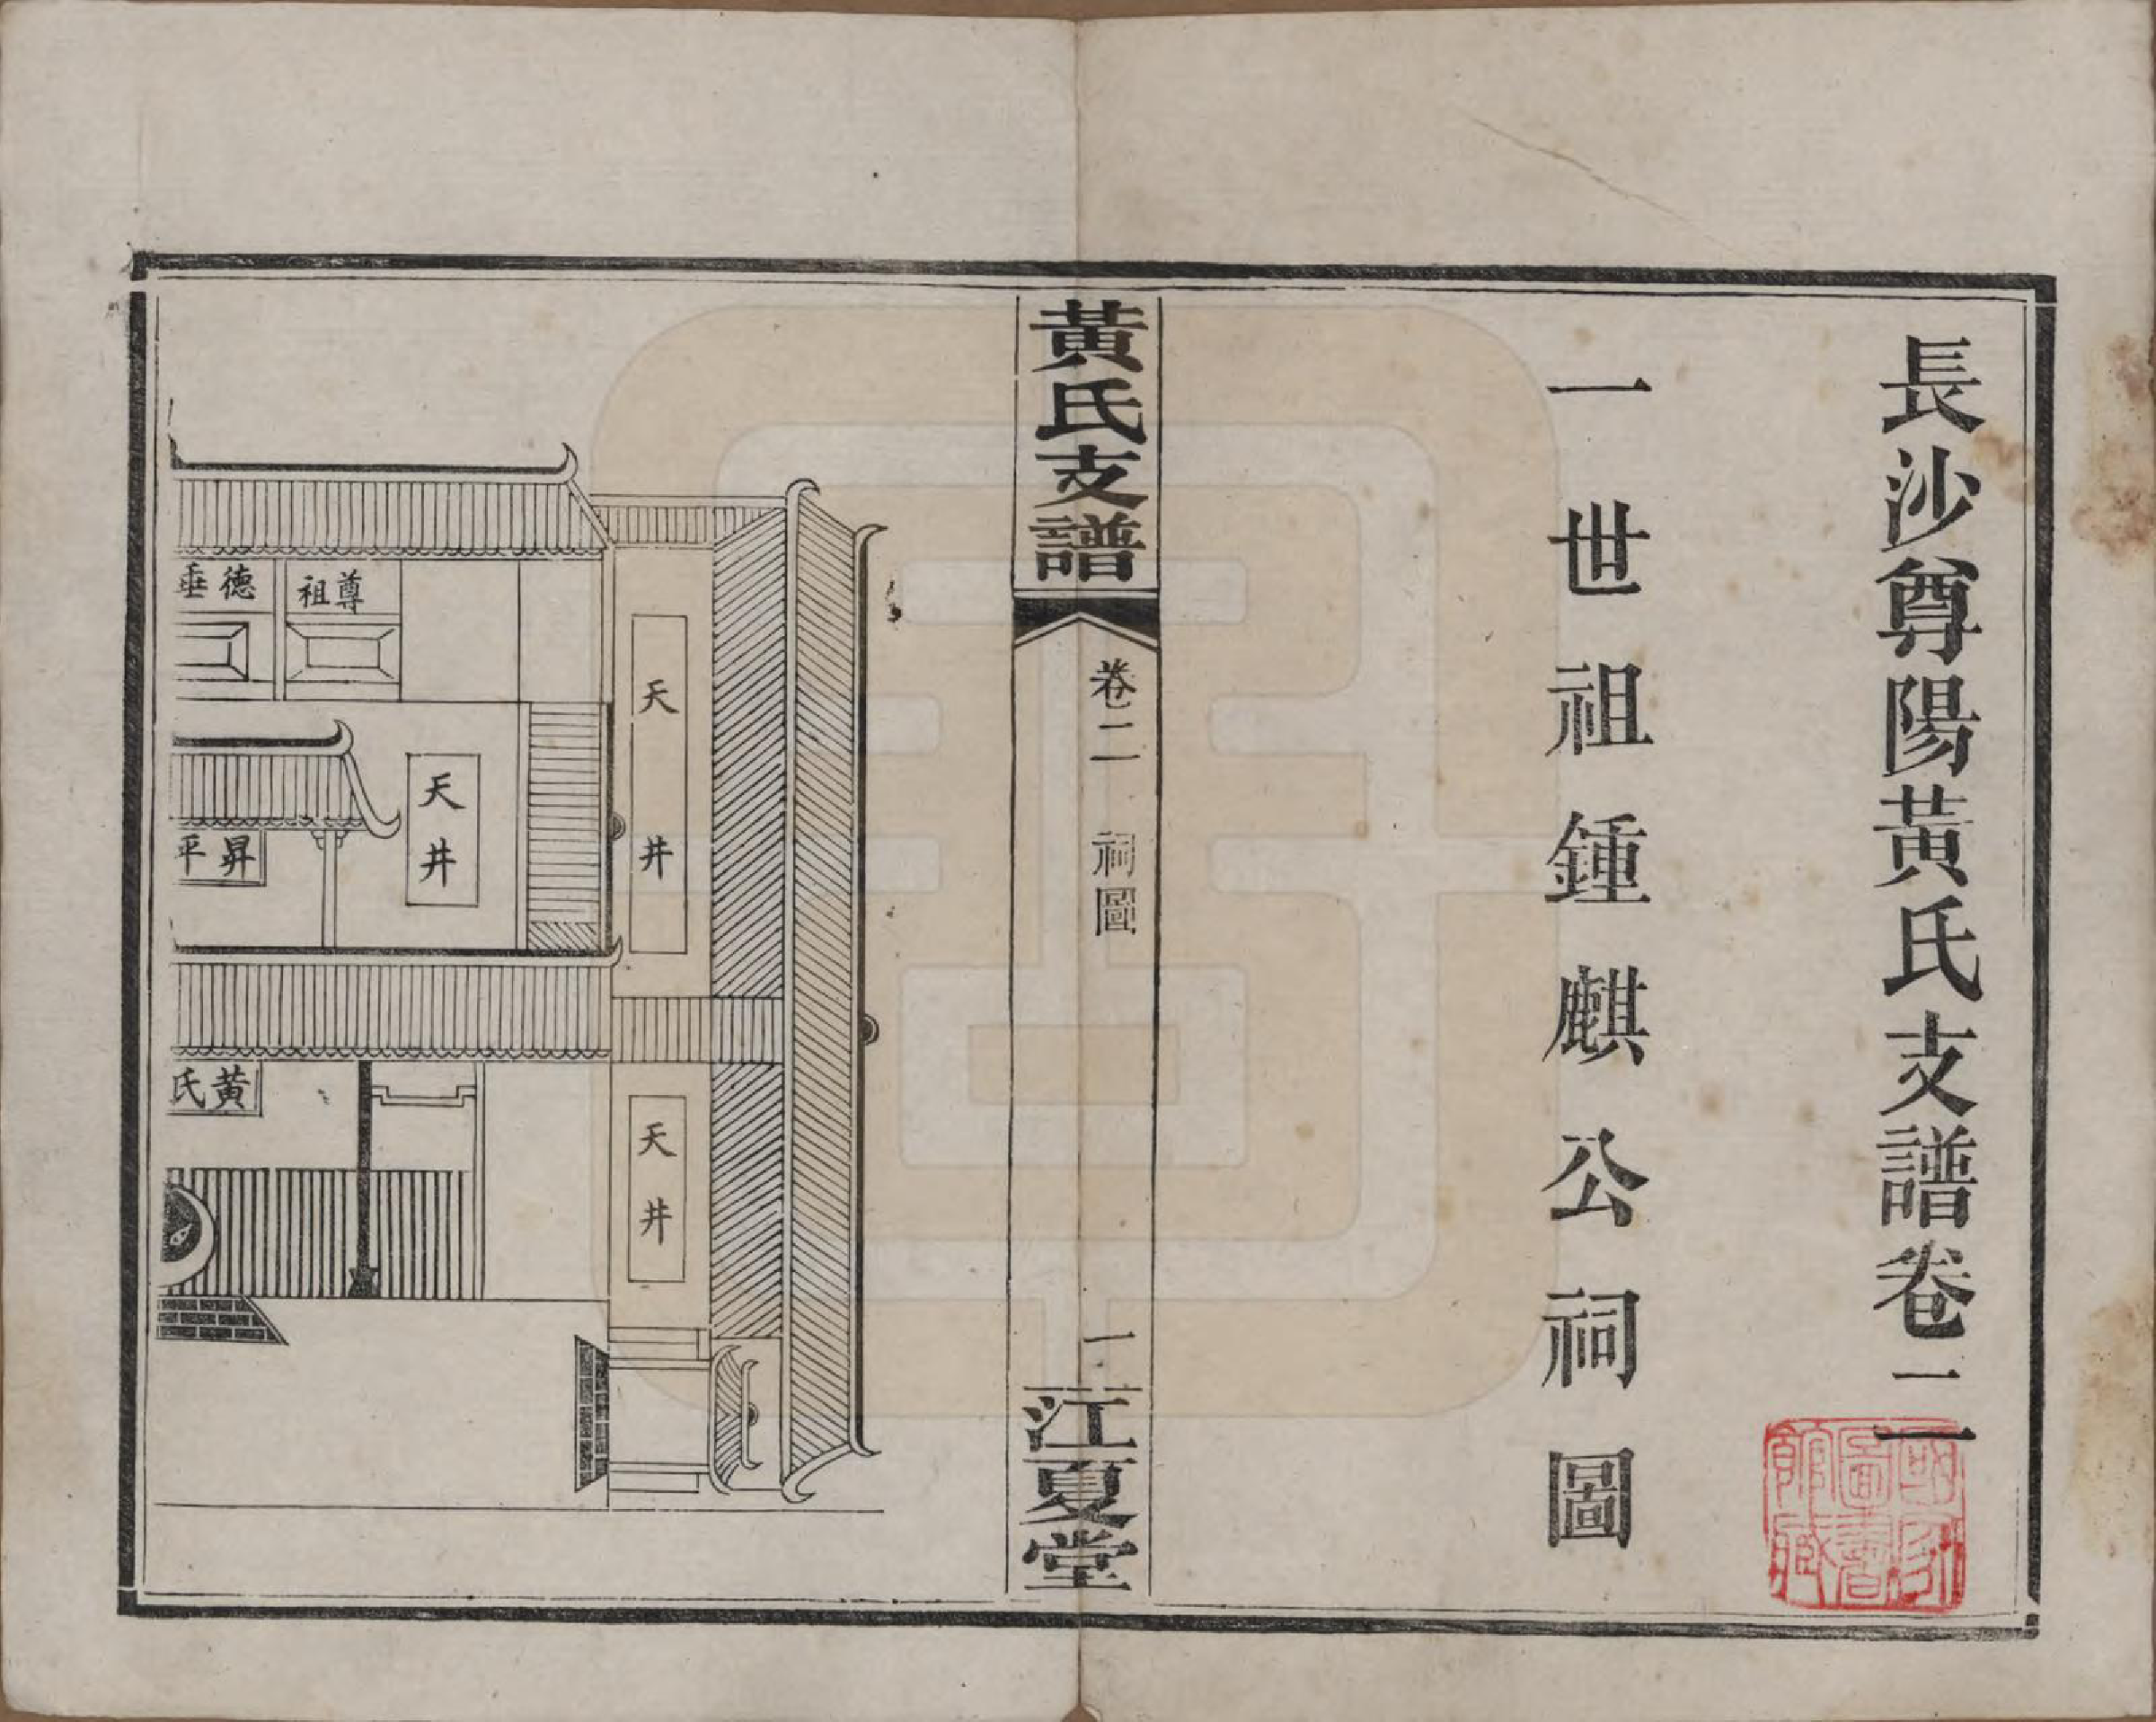 長沙尊陽黃氏支譜卷二
一世祖鍾麒公祠圖
國家圖書館藏
黃氏支譜
卷二
祠圖
一
江夏堂
天井
天井
尊祖
德垂
天井
昇平
黃氏